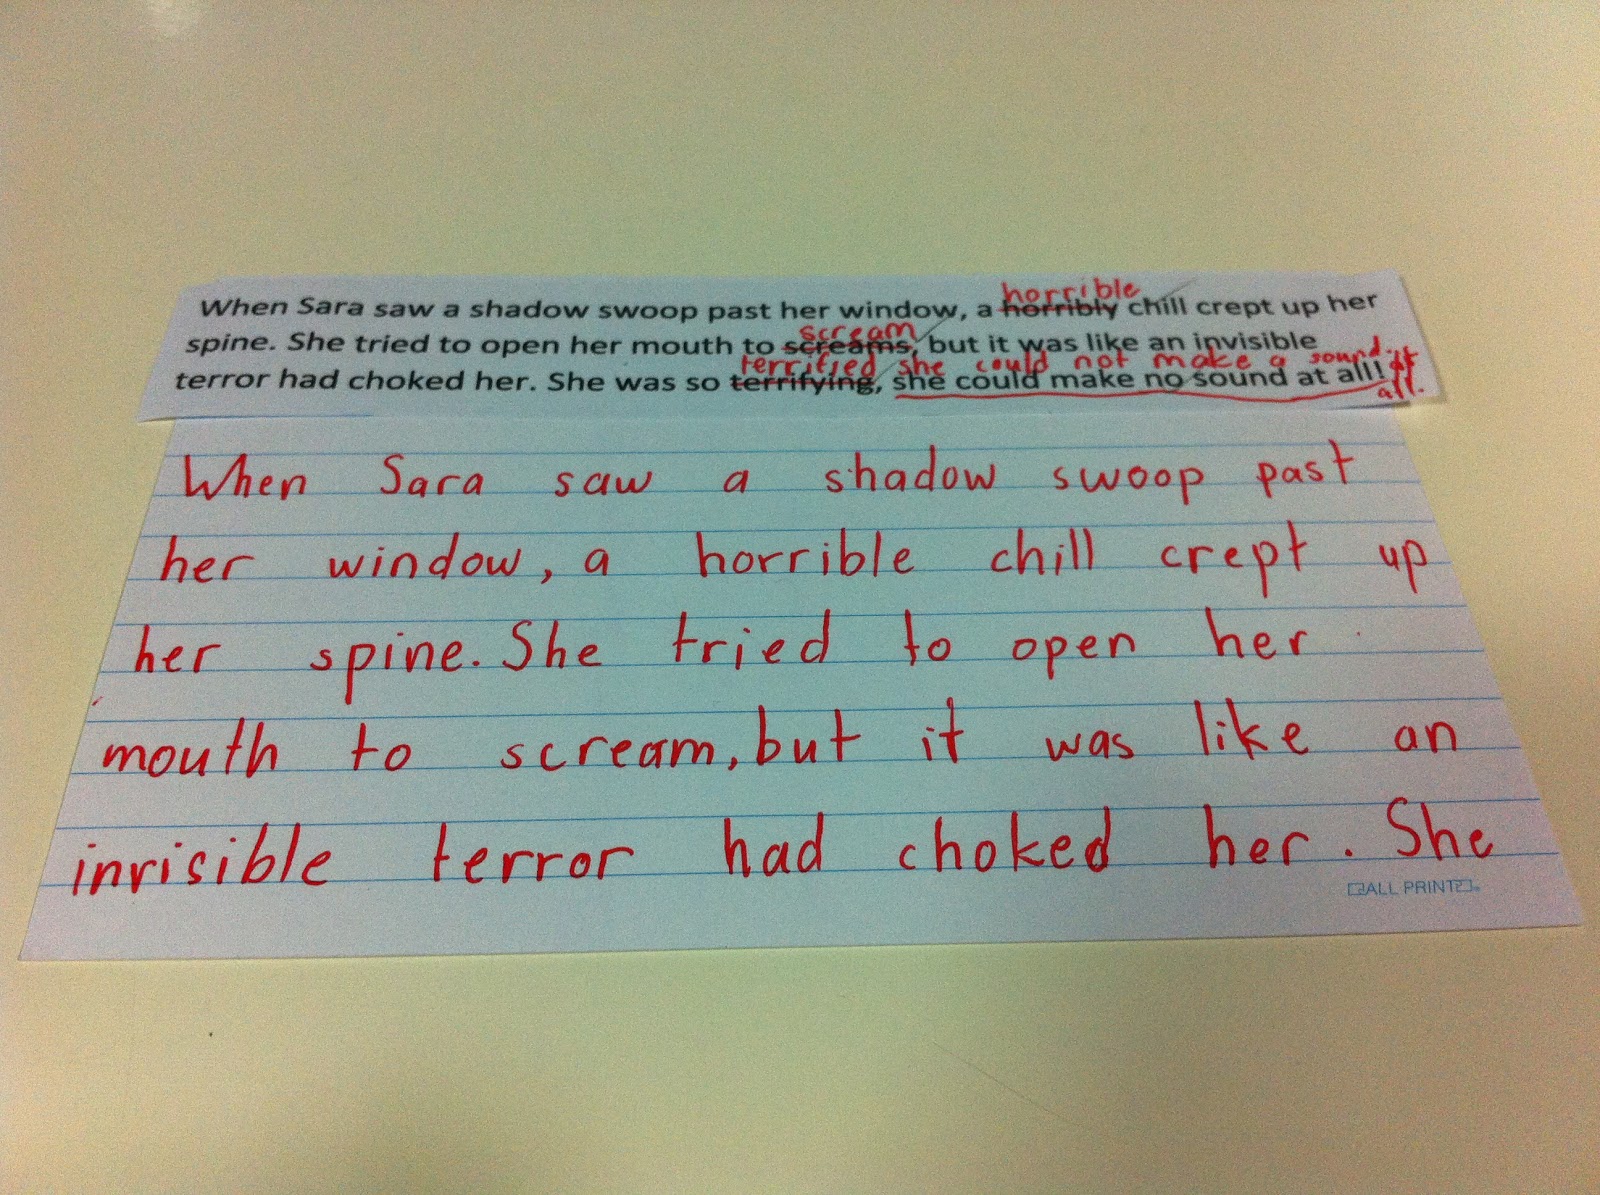 horrible
When Sara saw a shadow swoop past her window, a horribly chill crept up her
scream
spine. She tried to open her mouth to screams, but it was like an invisible
terrified she could not make a sound. at
terror had choked her. She was so terrifying, she could make no sound at all!
all.
When Sara saw a shadow swoop past
her window, a horrible chill crept up
her spine. She tried to open her
mouth to scream, but it was like an
invisible terror had choked her. She
ALL PRINTZ